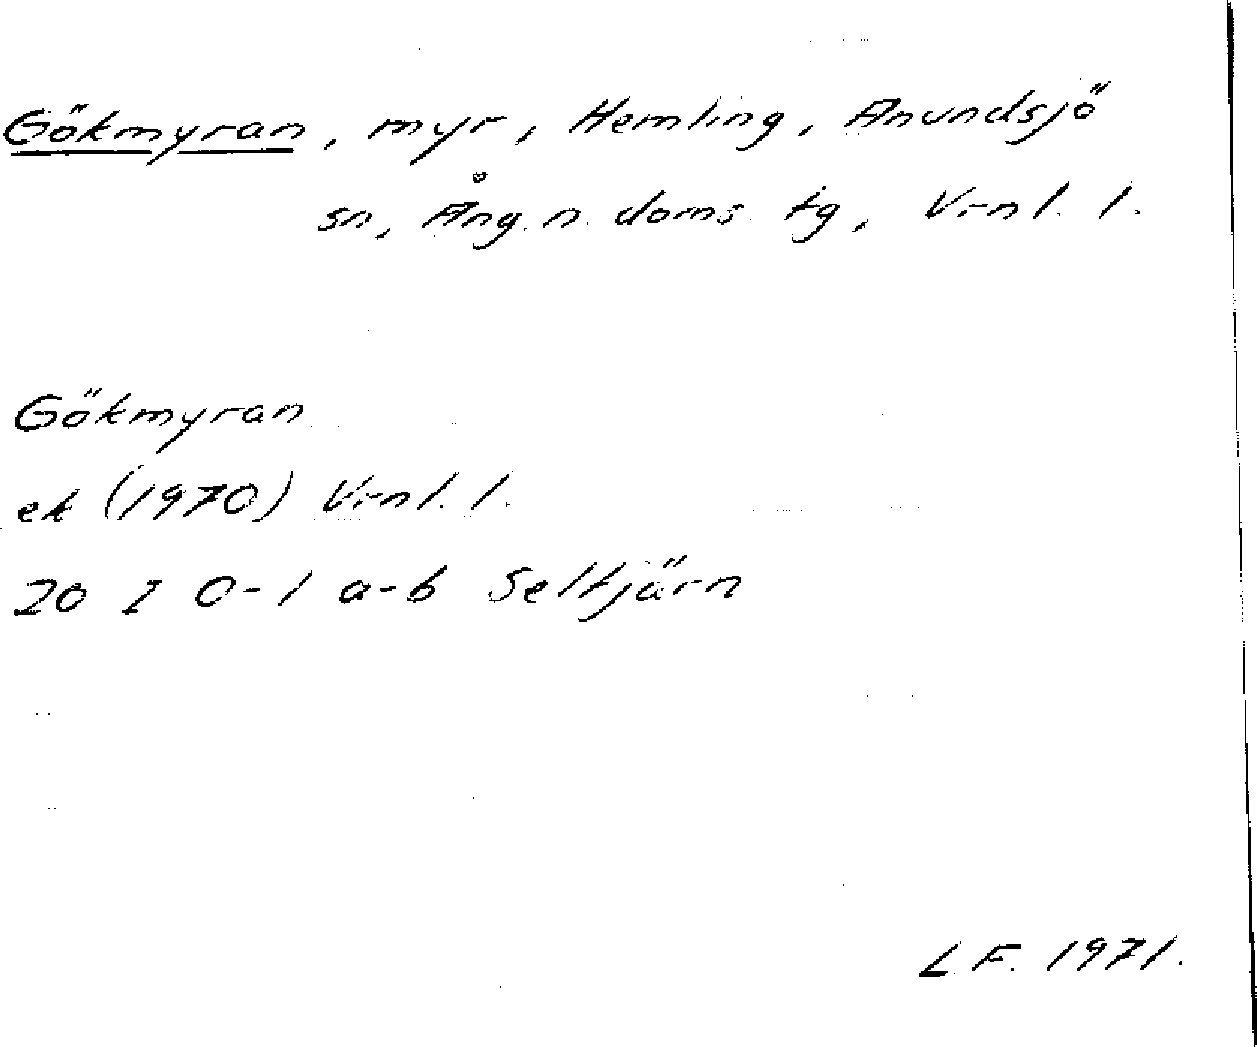 Gökmyran, myr, Hemling, Anundsjö
sn, Ång. n. doms. tg, Vrnl. l.
Gökmyran
ek (1970) Vrnl. l.
20 I 0-1 a-b Seltjärn
L.F. 1971.